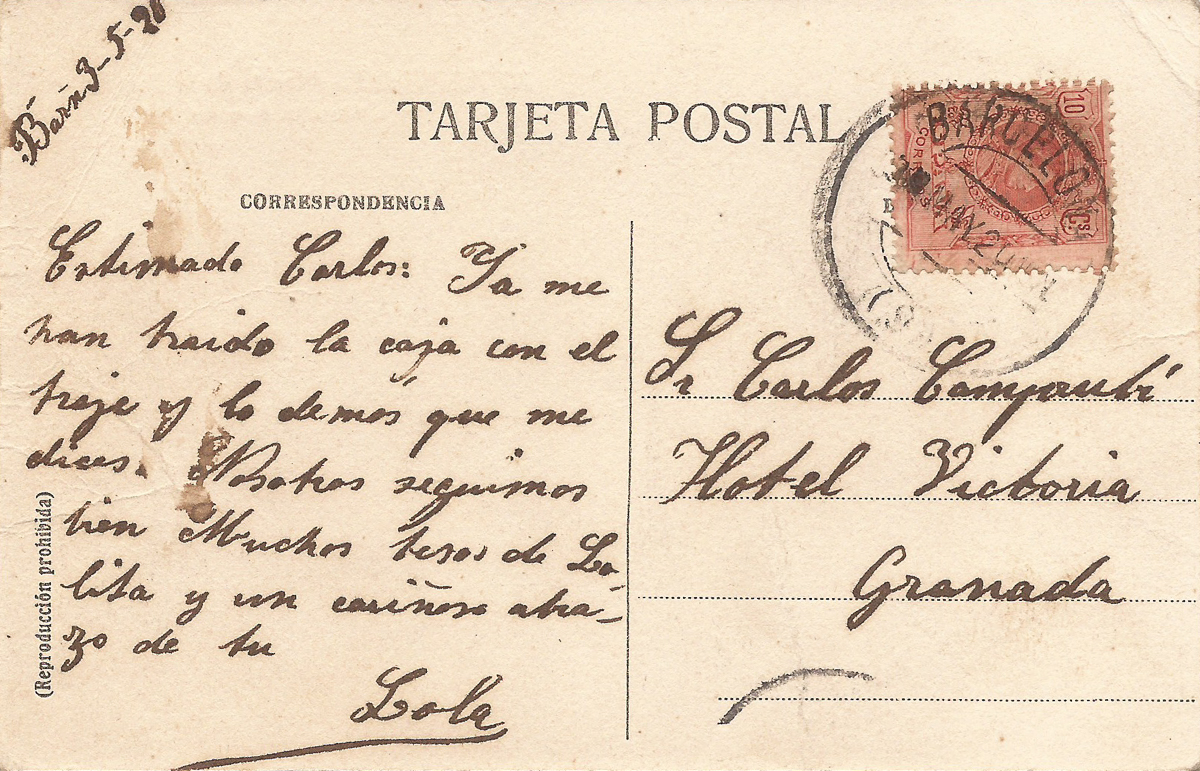 Barña 3-5-20
TARJETA POSTAL
CORRESPONDENCIA
Estimado Carlos: Ya me
han traido la caja con el
traje y lo demás que me
dices. Nosotros seguimos
bien Muchos besos de Lo-
lita y un cariñoso abra-
zo de tu
Lola
(Reproducción prohibida)
10
CORREOS
Cs.
BARCELO
MAY 20
Sr Carlos Camprubí
Hotel Victoria
Granada